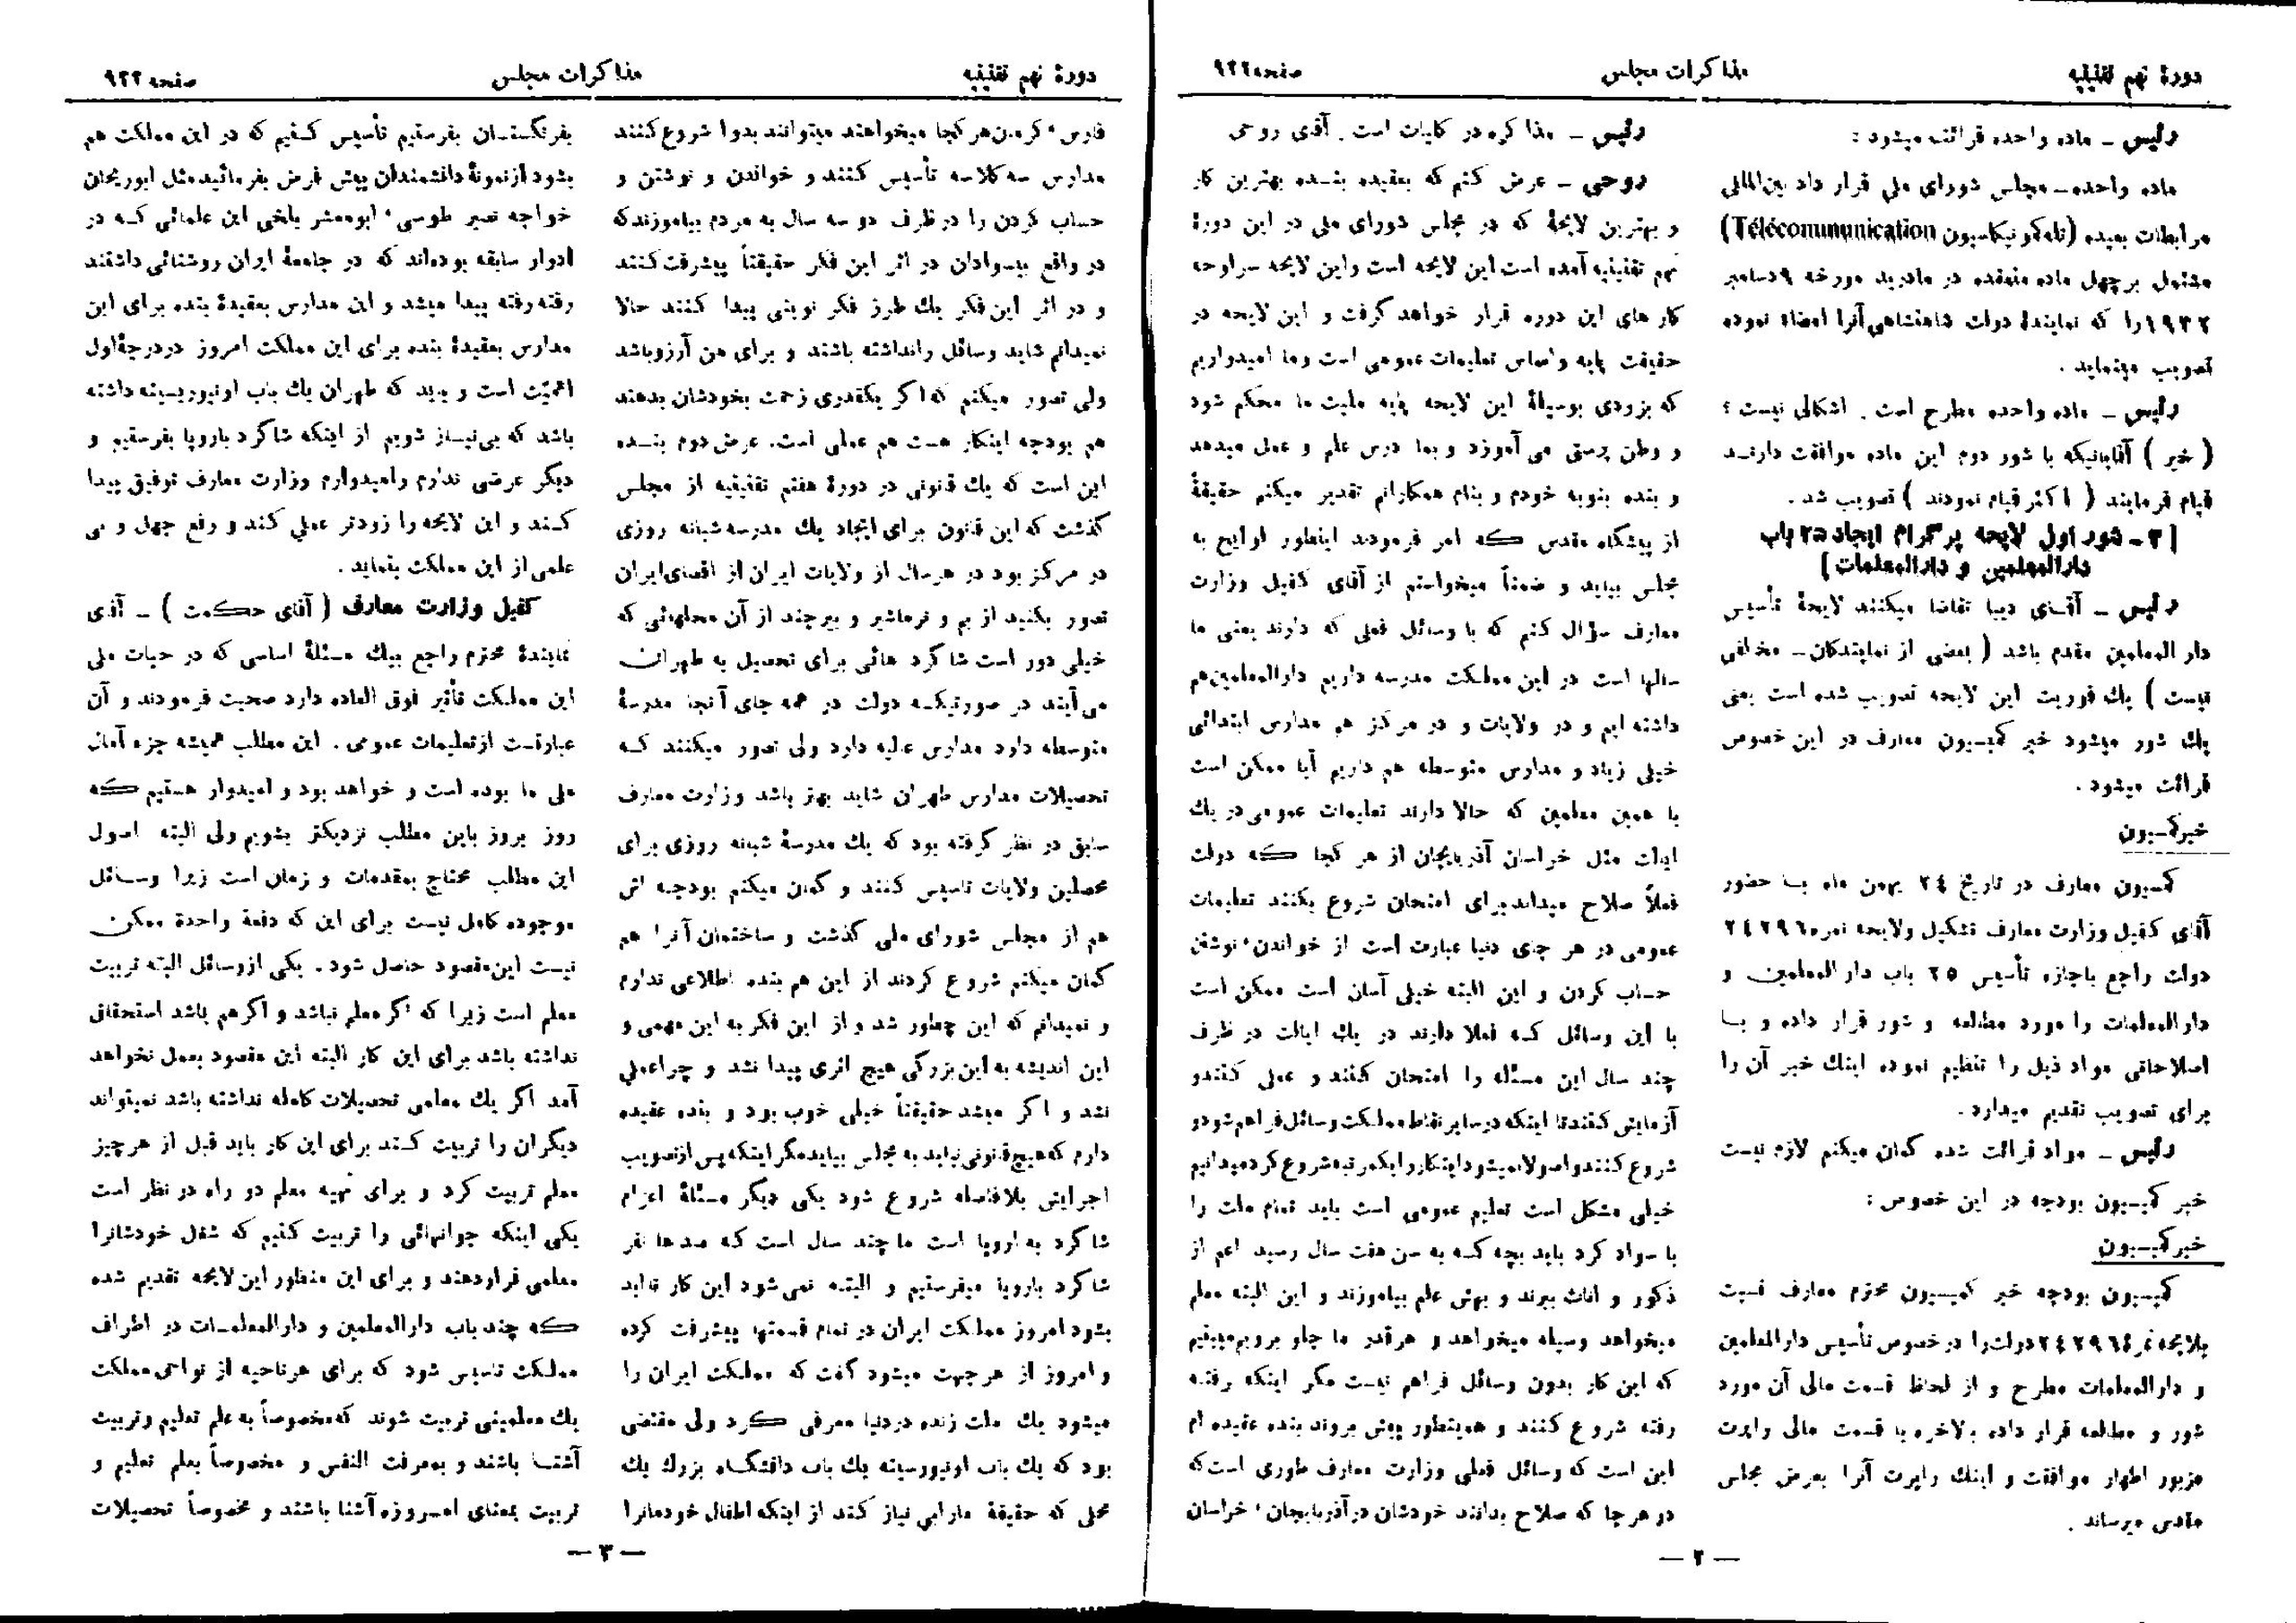 دورهٔ نهم تقنینیه
مذاکرات مجلس
صفحه ۹۲۲
رئیس ــ ماده واحده قرائت میشود :
ماده واحده ــ مجلس شورای ملی قرار داد بین‌المللی
مرابطات بعیده (تله‌کمونیکاسیون Télécommunication)
مشتمل بر چهل ماده منعقده در مادرید مورخه ۹ دسامبر
۱۹۳۲ را که نمایندهٔ دولت شاهنشاهی آنرا امضاء نموده
تصویب مینماید .
رئیس ــ ماده واحده مطرح است . اشکالی نیست ؟
( خیر ) آقایانیکه با شور دوم این ماده موافقت دارنـد
قیام فرمایند ( اکثر قیام نمودند ) تصویب شد .
[ ۳ ــ شور اول لایحه پرگرام ایجاد ۲۵ باب
دارالمعلمین و دارالمعلمات ]
رئیس ــ آقـای دیبا تقاضا میکنند لایحهٔ تأسیس
دار المعلمین مقدم باشد ( بعضی از نمایندگان ــ مخالفی
نیست ) یك فوریت این لایحه تصویب شده است یعنی
یك شور میشود خبر کمیسیون معارف در این خصوص
قرائت میشود .
خبر کمیسیون
کمیسیون معارف در تاریخ ۲۴ بهمن ماه بـا حضور
آقای کفیل وزارت معارف تشکیل ولایحه نمره ۲۴۲۹۶
دولت راجع باجازه تأسیس ۲۵ باب دار المعلمین و
دارالمعلمات را مورد مطالعه و شور قرار داده و بـا
اصلاحاتی مواد ذیل را تنظیم نموده اینك خبر آن را
برای تصویب تقدیم میدارد .
رئیس ــ مواد قرائت شده گمان میکنم لازم نیست
خبر کمیسیون بودجه در این خصوص :
خبر کمیسیون
کمیسیون بودجه خبر کمیسیون محترم معارف نسبت
بلایحه نمره ۲۴۲۹۶ دولت را در خصوص تأسیس دارالمعلمین
و دارالمعلمات مطرح و از لحاظ قسمت مالی آن مورد
شور و مطالعه قرار داده بالاخره با قسمت مالی راپرت
مزبور اظهار موافقت و اینك راپرت آنرا بعرض مجلس
مقدس میرساند .
رئیس ــ مذاکره در کلیات است . آقای روحی
روحی ــ عرض کنم که بعقیده بنـده بهترین کار
و بهترین لایحهٔ که در مجلس شورای ملی در این دورهٔ
نهم تقنینیه آمده است این لایحه است واین لایحه سر لوحه
کار های این دوره قرار خواهد گرفت و این لایحه در
حقیقت پایه و اساس تعلیمات عمومی است وما امیدواریم
که بزودی بوسیلهٔ این لایحه پایه ملیت ما محکم شود
و وطن پرستی می آموزد و بما درس علم و عمل میدهد
و بنده بنوبه خودم و بنام همکارانم تقدیر میکنم حقیقةً
از پیشگاه مقدس که امر فرمودند اینطور لوایح به
مجلس بیاید و ضمناً میخواستم از آقای کفیل وزارت
معارف سؤال کنم که با وسائل فعلی که دارند یعنی ما
سالها است در این مملکت مدرسه داریم دارالمعلمین هم
داشته ایم و در ولایات و در مرکز هم مدارس ابتدائی
خیلی زیاد و مدارس متوسطه هم داریم آیا ممکن است
با همین معلمین که حالا دارند تعلیمات عمومی در یك
ایالت مثل خراسان آذربایجان از هر کجا که دولت
فعلاً صلاح میداند برای امتحان شروع بکنند تعلیمات
عمومی در هر جای دنیا عبارت است از خواندن، نوشتن
حساب کردن و این البته خیلی آسان است ممکن است
با این وسائل کـه فعلا دارند در یك ایالت در ظرف
چند سال این مسئله را امتحان کنند و عملی کنند و
آزمایش کنند تا اینکه در سایر نقاط مملکت وسائل فراهم شود و
شروع کنند و اصولا نمیشود اینکار را یکمرتبه شروع کرد میدانیم
خیلی مشکل است تعلیم عمومی است باید تمام ملت را
با سواد کرد باید بچه کـه به سن هفت سال رسید اعم از
ذکور و اناث ببرند و بهش علم بیاموزند و این البته معلم
میخواهد وسیله میخواهد و هرقدر ما جلو برویم میبینیم
که این کار بدون وسائل فراهم نیست مگر اینکه رفته
رفته شروع کنند و همینطور پیش بروند بنده عقیده ام
این است که وسائل فعلی وزارت معارف طوری است که
در هر جا که صلاح بدانند خودشان در آذربایجان ، خراسان
— ۲ —
دورهٔ نهم تقنینیه
مذاکرات مجلس
صفحه ۹۲۳
فارس ، کرمان هر کجا میخواهند میتوانند بدوا شروع کنند
مدارس سه کلاسه تأسیس کنند و خواندن و نوشتن و
حساب کردن را در ظرف دو سه سال به مردم بیاموزند که
در واقع بیسوادان در اثر این فکر حقیقتاً پیشرفت کنند
و در اثر این فکر یك طرز فکر نوینی پیدا کنند حالا
نمیدانم شاید وسائل را نداشته باشند و برای من آرزو باشد
ولی تصور میکنم که اگر یکقدری زحمت بخودشان بدهند
هم بودجه اینکار هست هم عملی است. عرض دوم بنـده
این است که یك قانونی در دورهٔ هفتم تقنینیه از مجلس
گذشت که این قانون برای ایجاد یك مدرسه شبانه روزی
در مرکز بود در هر سال از ولایات ایران از اقصای ایران
تصور بکنید از بم و نرماشیر و بیرجند از آن محلهائی که
خیلی دور است شاگرد هائی برای تحصیل به طهران
می آیند در صورتیکـه دولت در همه جای آنجا مدرسهٔ
متوسطه دارد مدارس عالیه دارد ولی تصور میکنند کـه
تحصیلات مدارس طهران شاید بهتر باشد وزارت معارف
سابق در نظر گرفته بود که یك مدرسهٔ شبانه روزی برای
محصلین ولایات تاسیس کنند و گمان میکنم بودجه اش
هم از مجلس شورای ملی گذشت و ساختمان آنرا هم
گمان میکنم شروع کردند از این هم بنده اطلاعی ندارم
و نمیدانم که این چطور شد و از این فکر به این مهمی و
این اندیشه به این بزرگی هیچ اثری پیدا نشد و چرا عملی
نشد و اگر میشد حقیقتاً خیلی خوب بود و بنده عقیده
دارم که هیچ قانونی نباید به مجلس بیاید مگر اینکه پس از تصویب
اجرایش بلافاصله شروع شود یکی دیگر مسئلهٔ اعزام
شاگرد به اروپا است ما چند سال است که صدها نفر
شاگرد باروپا میفرستیم و البتـه نمی شود این کار نباید
بشود امروز مملکت ایران در تمام قسمتها پیشرفت کرده
و امروز از هر جهت میشود گفت که مملکت ایران را
میشود یك ملت زنده در دنیا معرفی کرد ولی مقتضی
بود که یك باب اونیورسیته یك باب دانشگـاه بزرك یك
محلی که حقیقةً ما را بی نیاز کند از اینکه اطفال خودمانرا
بفرنگستـان بفرستیم تأسیس کـنیم که در این مملکت هم
بشود از نمونهٔ دانشمندان پیش فرض بفرمائید مثل ابوریحان
خواجه نصیر طوسی ، ابومعشر بلخی این علمائی کـه در
ادوار سابقه بوده‌اند که در جامعهٔ ایران روشنائی داشتند
رفته رفته پیدا میشد و این مدارس بعقیدهٔ بنده برای این
مدارس بعقیدهٔ بنده برای این مملکت امروز در درجهٔ اول
اهمیّت است و باید که طهران یك باب اونیورسیته داشته
باشد که بی نیـاز شویم از اینکه شاگرد باروپا بفرستیم و
دیگر عرضی ندارم وامیدوارم وزارت معارف توفیق پیدا
کـند و این لایحه را زودتر عملی کند و رفع جهل و بی
علمی از این مملکت بنماید .
کفیل وزارت معارف ( آقای حکمت ) ــ آقای
نمایندهٔ محترم راجع بیك مسئلهٔ اساسی که در حیات ملی
این مملکت تأثیر فوق العاده دارد صحبت فرمودند و آن
عبارتست از تعلیمات عمومی . این مطلب همیشه جزء آمال
ملی ما بوده است و خواهد بود و امیدوار هستیم که
روز بروز باین مطلب نزدیکتر بشویم ولی البته اصول
این مطلب محتاج بمقدمات و زمان است زیرا وسـائل
موجوده کامل نیست برای این که دفعة واحدة ممکن
نیست این مقصود حاصل شود . یکی از وسائل البته تربیت
معلم است زیرا که اگر معلم نباشد و اگر هم باشد استحقاق
نداشته باشد برای این کار البته این مقصود بعمل نخواهد
آمد اگر یك معلمی تحصیلات کامله نداشته باشد نمیتواند
دیگران را تربیت کـند برای این کار باید قبل از هر چیز
معلم تربیت کرد و برای تهیه معلم دو راه در نظر است
یکی اینکه جوانهائی را تربیت کنیم که شغل خودشانرا
معلمی قرار دهند و برای این منظور این لایحه تقدیم شده
که چند باب دارالمعلمین و دارالمعلمـات در اطراف
مملکت تاسیس شود که برای هر ناحیه از نواحی مملکت
یك معلمینی تربیت شوند که مخصوصاً به علم تعلیم و تربیت
آشنـا باشند و بمعرفت النفس و مخصوصاً بعلم تعلیم و
تربیت بمعنای امـروزه آشنا باشند و مخصوصاً تحصیلات
— ۳ —